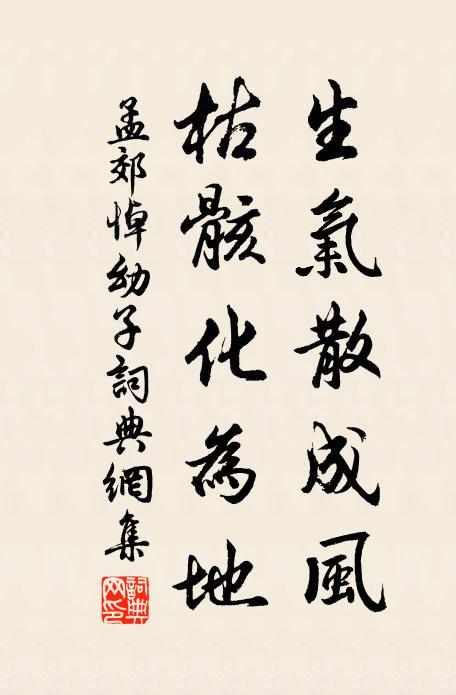 生氣散成風
枯骸化為地
孟郊悼幼子詞典網集
詞典網印